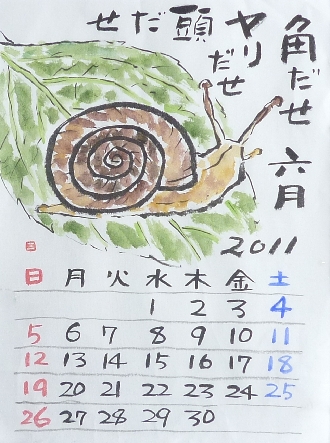 角だせ
ヤリだせ
頭だせ
六月
2011
日 月 火 水 木 金 土
1 2 3 4
5 6 7 8 9 10 11
12 13 14 15 16 17 18
19 20 21 22 23 24 25
26 27 28 29 30